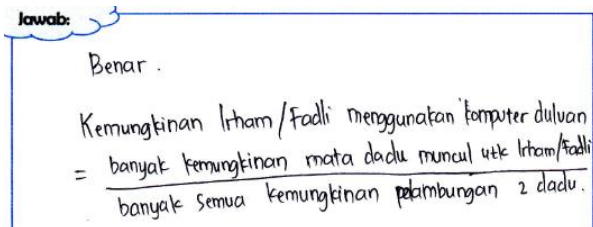 Jawab:
Benar.
Kemungkinan Irham/Fadli menggunakan komputer duluan
= banyak kemungkinan mata dadu muncul utk Irham/Fadli
banyak semua kemungkinan pelambungan 2 dadu.